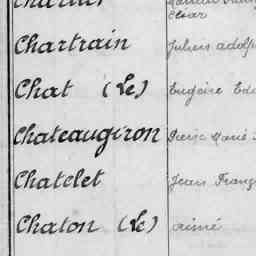 Cesar
Chartrain Julien adolp
Chat (Le) Eugène Ed
Chateaugiron Pierre Marie
Chatelet Jean Franç
Chaton (Le) aimé